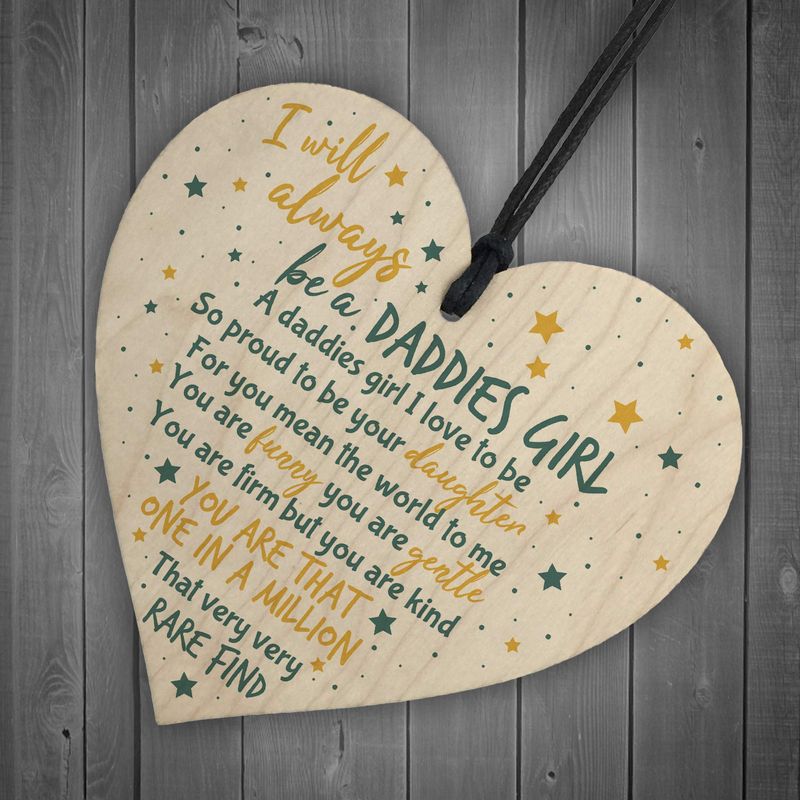 I will
always
be a DADDIES GIRL
A daddies girl I love to be
So proud to be your daughter
For you mean the world to me
You are funny you are gentle
You are firm but you are kind
YOU ARE THAT
ONE IN A MILLION
That very very
RARE FIND